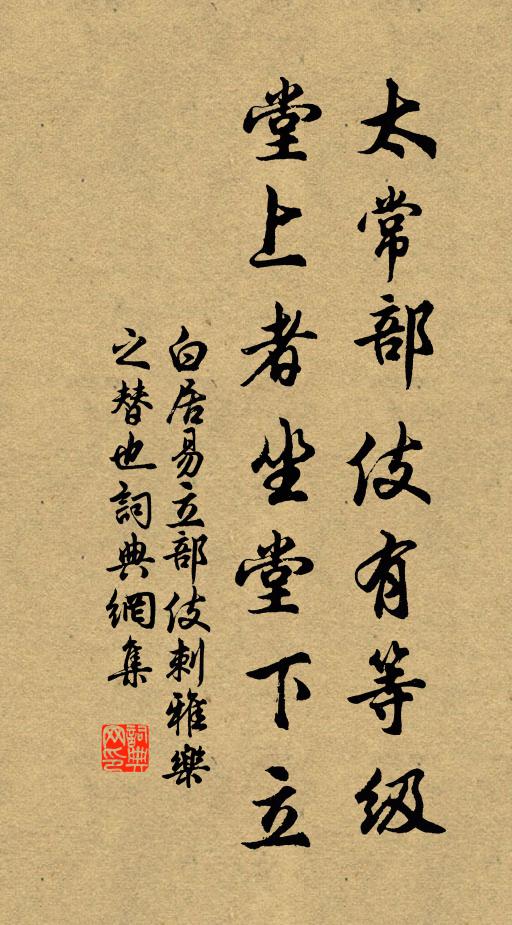 太常部伎有等級
堂上者坐堂下立
白居易立部伎刺雅樂
之替也詞典網集
詞典網印